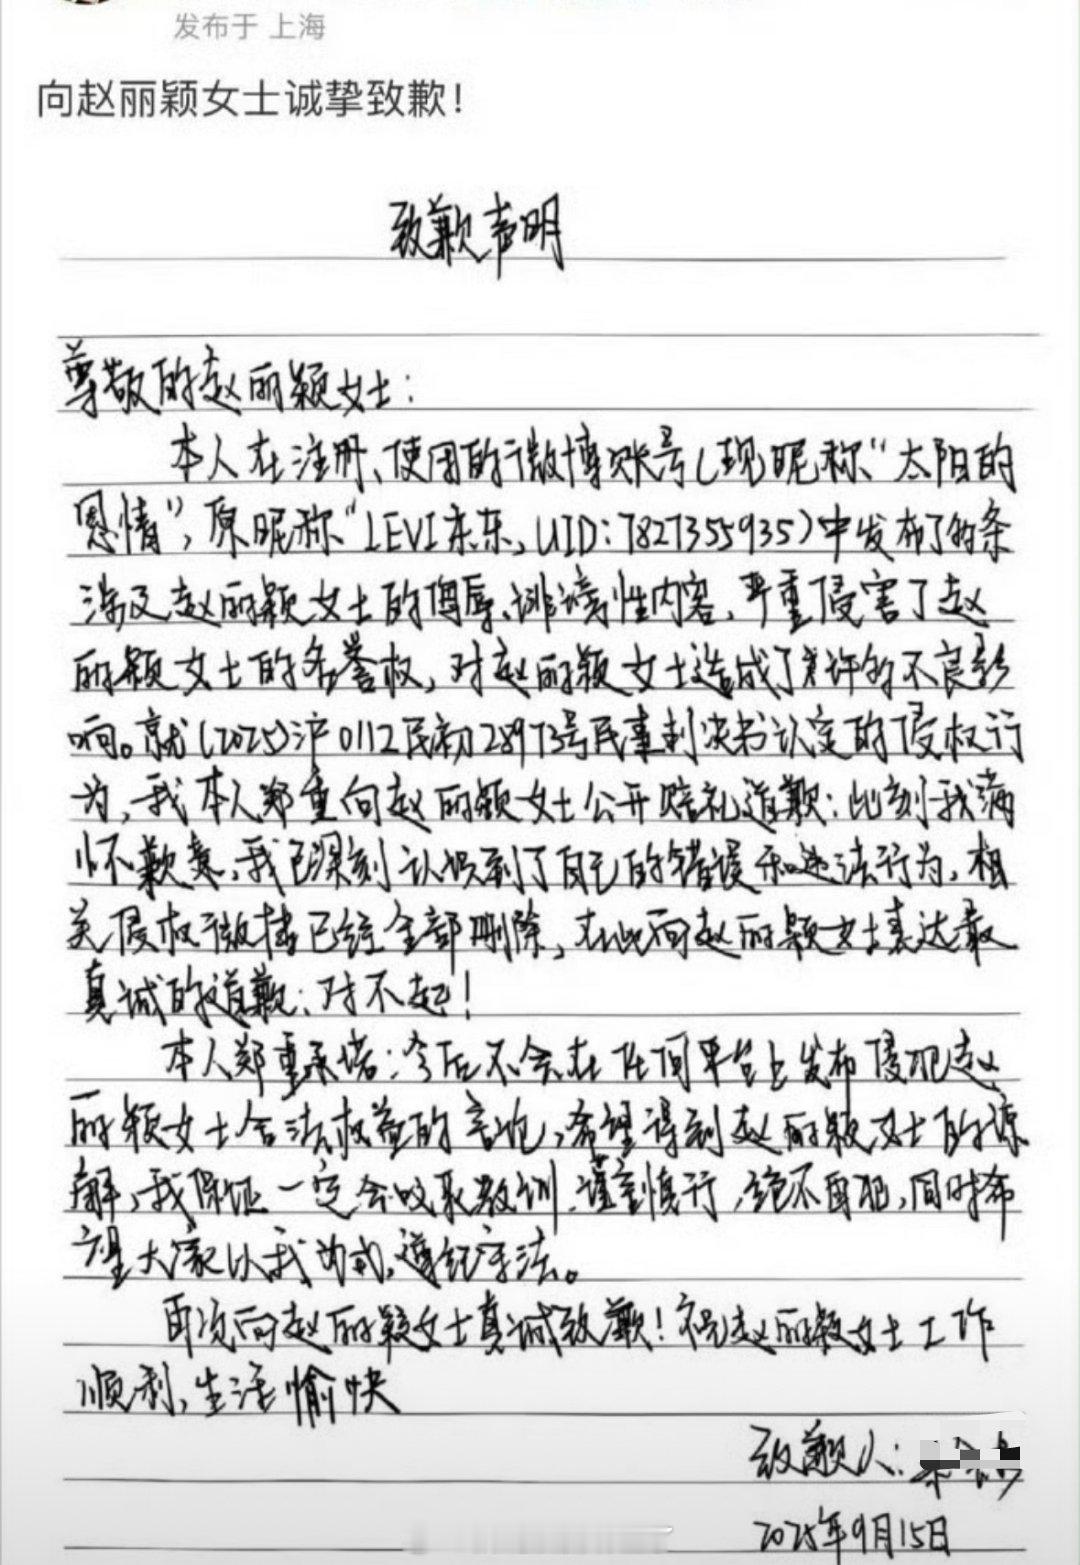 发布于 上海
向赵丽颖女士诚挚致歉！
致歉声明
尊敬的赵丽颖女士：
本人在注册、使用的微博账号（现昵称“太阳的
恩情”，原昵称“LEVI东东，UID：7827355935）中发布了的条
涉及赵丽颖女士的侮辱、诽谤性内容，严重侵害了赵
丽颖女士的名誉权，对赵丽颖女士造成了某许的不良影
响。就（2025）沪0112民初28973号民事判决书认定的侵权行
为，我本人郑重向赵丽颖女士公开赔礼道歉：此刻我满
怀歉意，我已深刻认识到了自己的错误和违法行为，相
关侵权微博已经全部删除，在此向赵丽颖女士表达最
真诚的道歉：对不起！
本人郑重承诺：今后不会在任何平台上发布侵犯赵
丽颖女士合法权益的言论，希望得到赵丽颖女士的谅
解，我保证一定会吸取教训、谨言慎行，绝不再犯，同时希
望大家以我为戒，遵纪守法。
再次向赵丽颖女士真诚致歉！祝赵丽颖女士工作
顺利，生活愉快
致歉人：
2025年9月15日